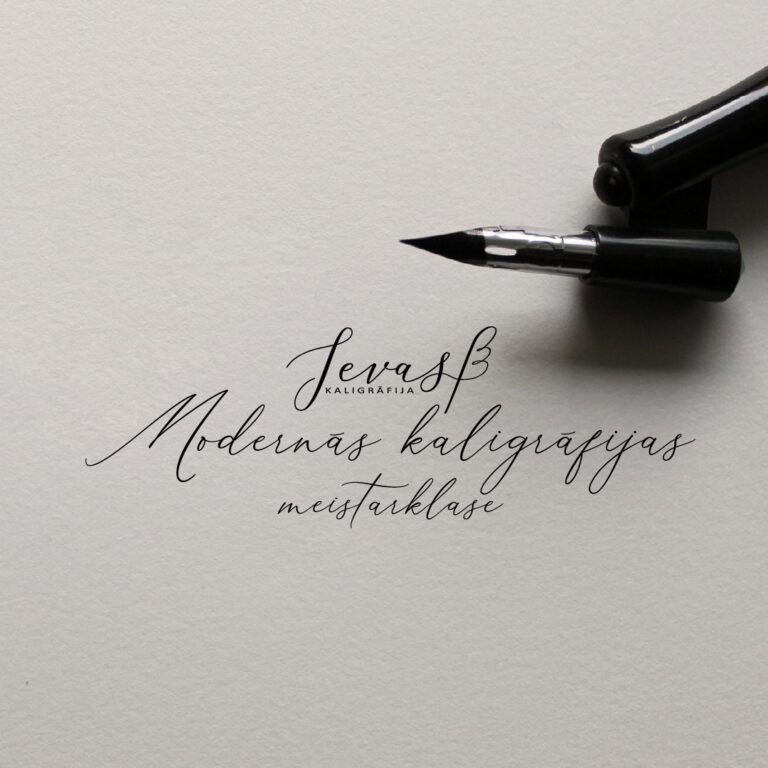 Ievas
KALIGRĀFIJA
Modernās kaligrāfijas
meistarklase